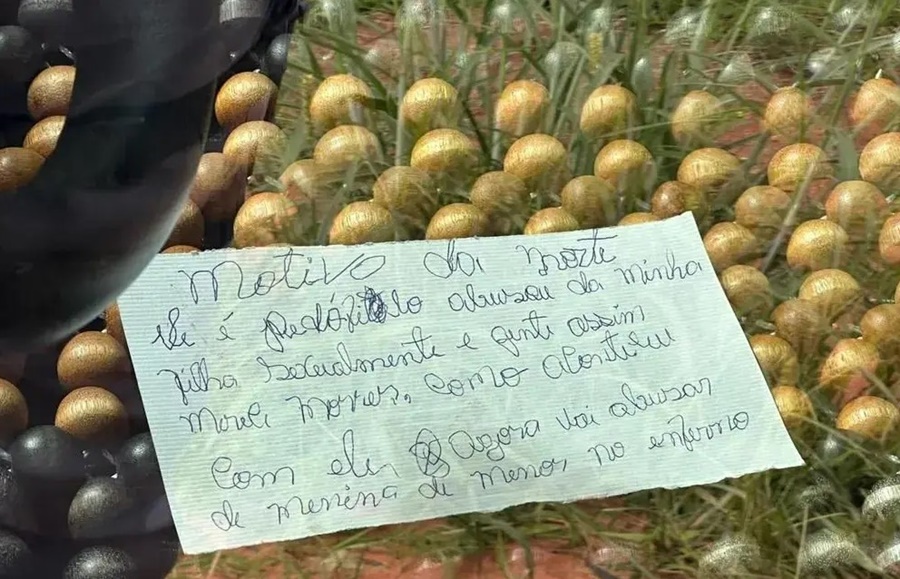 Motivo da morte
Ele é pedófilo abusou da minha
filha sexualmente e gente assim
mereci morrer, como aconteceu
com ele, Agora vai abusar
de menina de menor no inferno